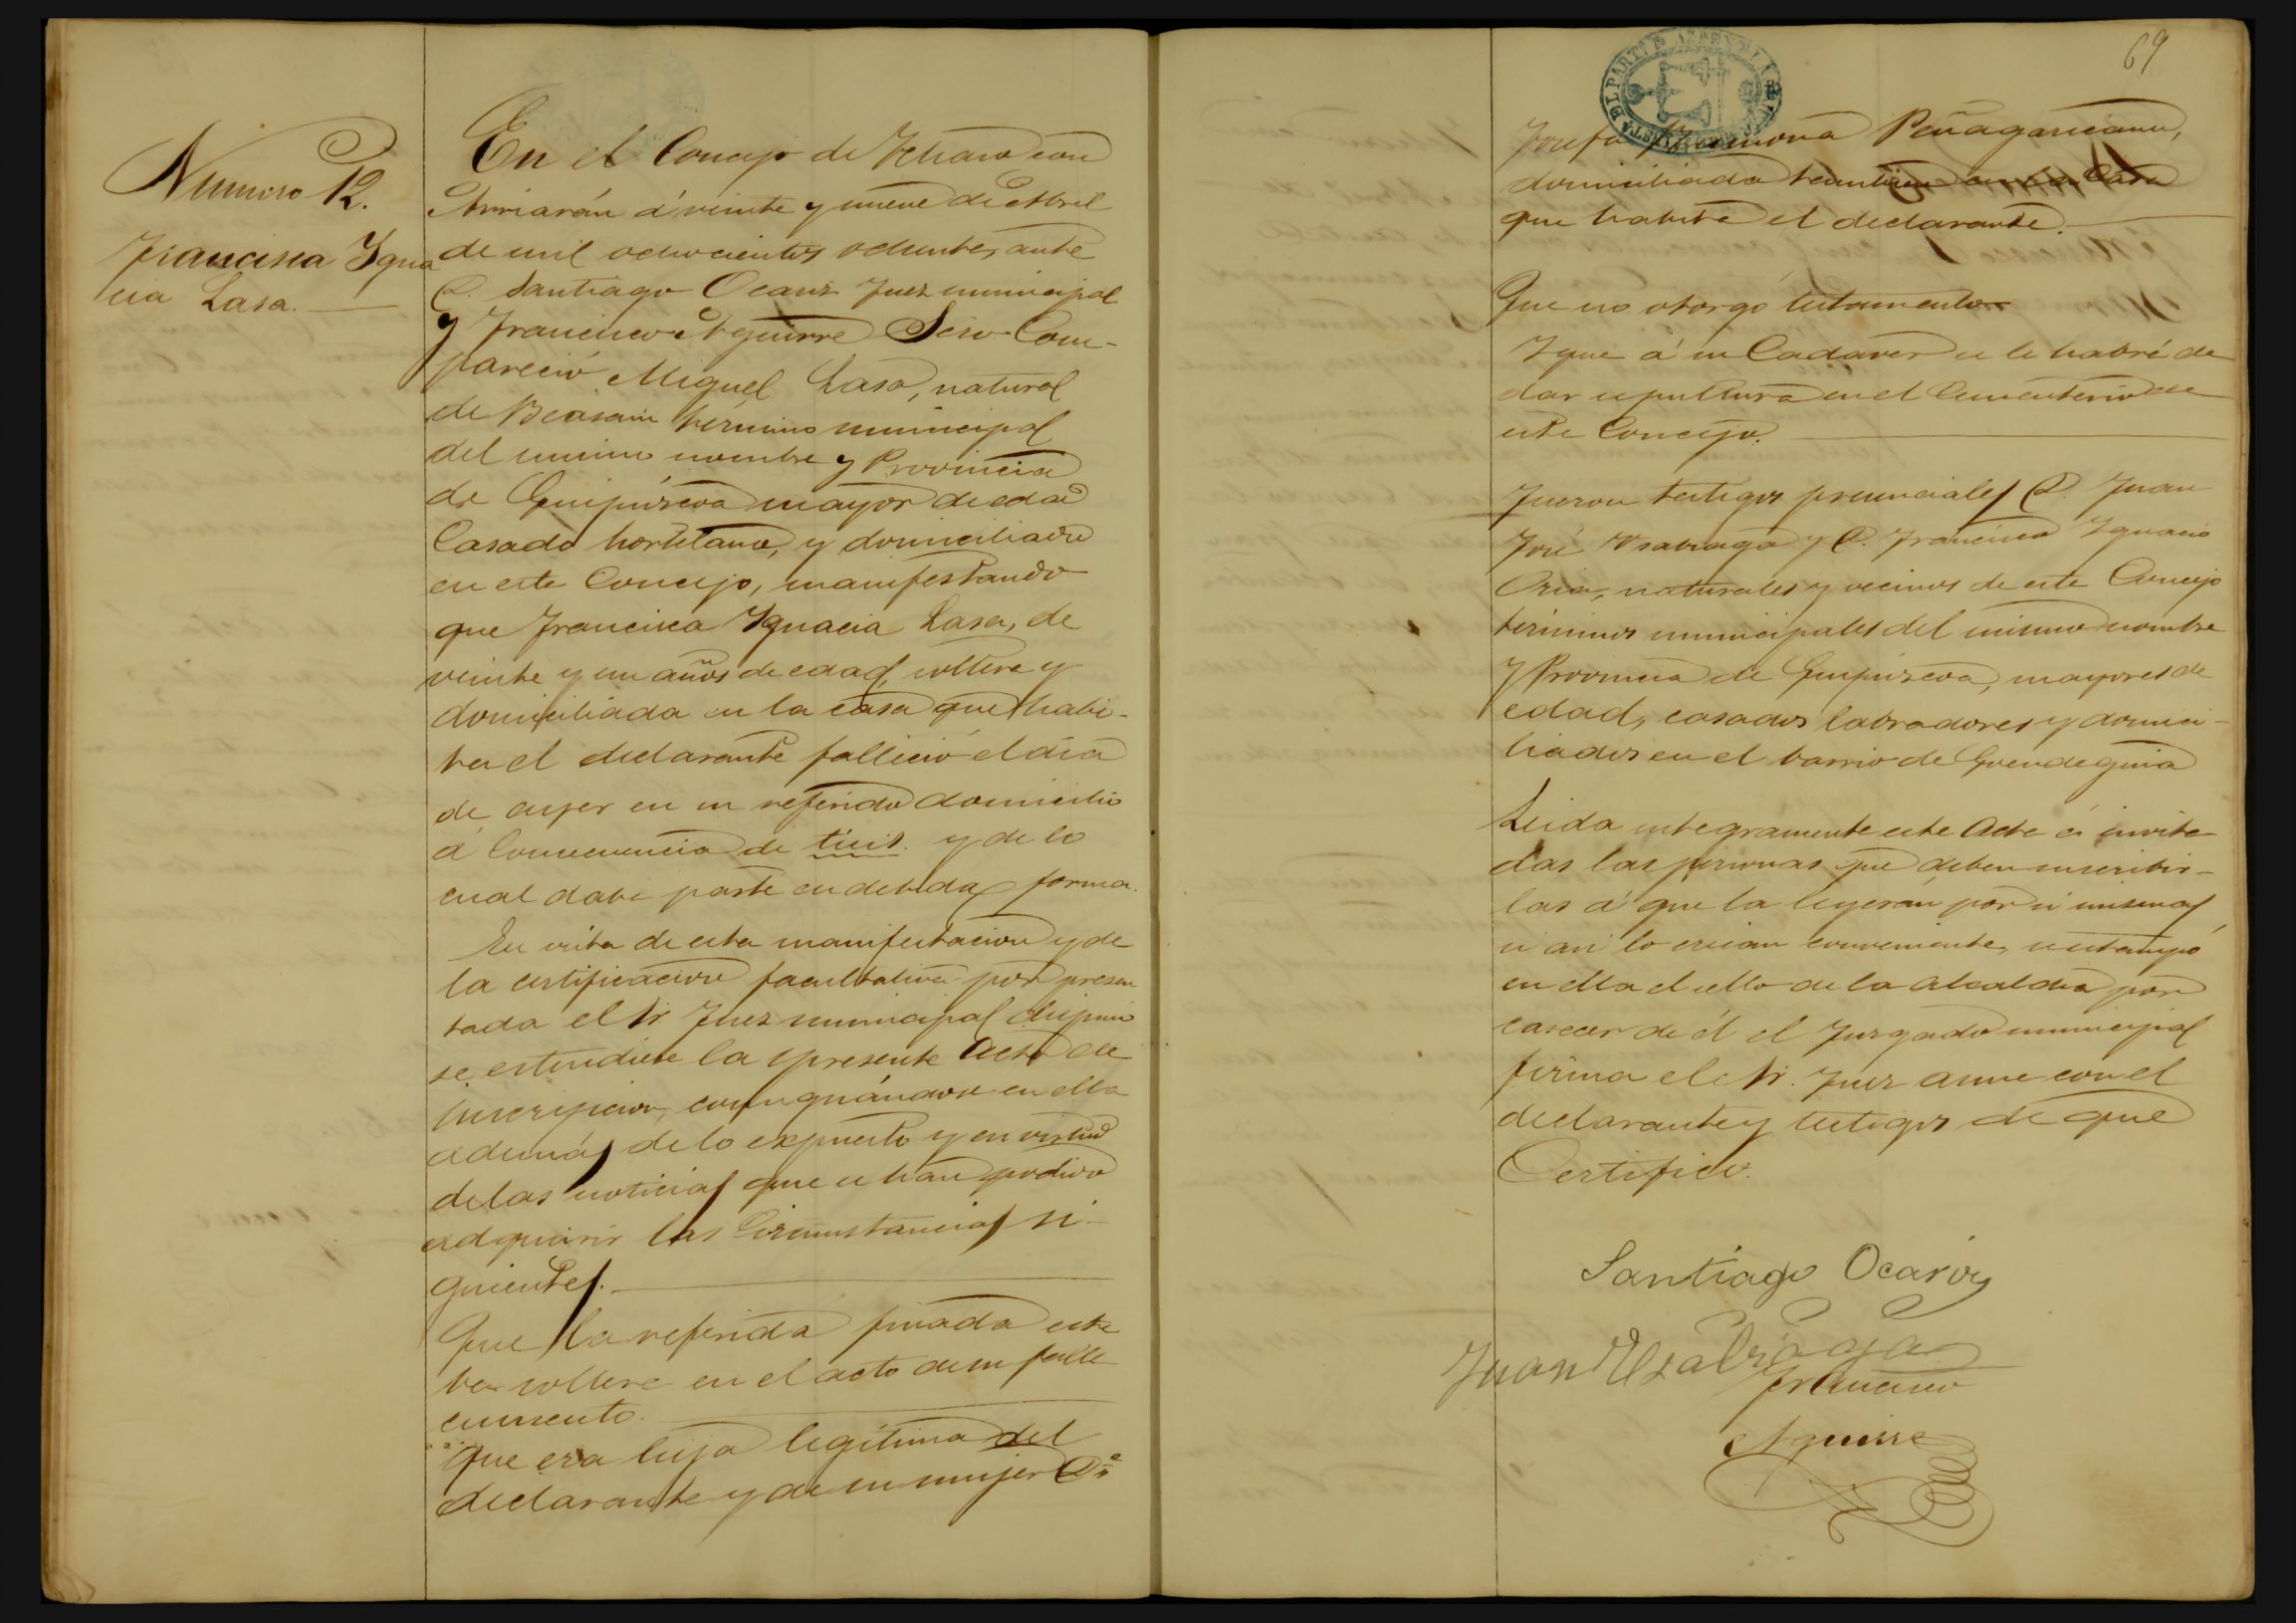 Numero 12.
Francisca Igna
cia Lasa.
En el Concejo de Ichaso con
Arriarán á veinte y nueve de Abril
de mil ochocientos ochenta, ante
D. Santiago Ocariz Juez municipal
y Francisco Aguirre Scrio Com-
pareció Miguel Lasa, natural
de Beasain término municipal
del mismo nombre y Provincia
de Guipúzcoa mayor de edad
Casado hortelano, y domiciliado
en este Concejo, manifestando
que Francisca Ignacia Lasa, de
veinte y un años de edad, soltera y
domiciliada en la casa que habi-
ta el declarante falleció el dia
de ayer en su referido domicilio
á Consecuencia de tisis. y de lo
cual daba parte en debida forma.
En vista de esta manifestacion y de
la certificacion facultativa por presen
tada el Sr. Juez municipal dispuso
se estendiese la presente Acta de
inscripcion, consignándose en ella
además de lo expuesto y en virtud
de las noticias que se han podido
adquirir las Circunstancias si-
guientes.
Que la referida finada esta
ba soltera en el acto de su falle
cimiento.
Que era hija legítima del
declarante y de su mujer Dª
69
Josefa Ramona Peñagaricano,
domiciliada tambien en la Casa
que habita el declarante.
Que no otorgó testamento
Y que á su Cadaver se le habrá de
dar sepultura en el Cementerio de
este Concejo.
Fueron testigos presenciales D. Juan
José Usabiaga y D. Francisco Ignacio
Oria, naturales y vecinos de este Concejo
términos municipales del mismo nombre
y Provincia de Guipúzcoa, mayores de
edad, casados labradores y domici-
liados en el barrio de
Leida integramente este Acta é invita-
das las personas que deben suscribir-
las á que la leyeran por si mismas
si asi lo creian conveniente, se estampó
en ella el sello de la Alcaldia por
carecer de él el Juzgado municipal
firma el Sr. Juez con el
declarante y testigos de que
Certifico.
Santiago Ocariz
Juan Usabiaga
Francisco
Aguirre